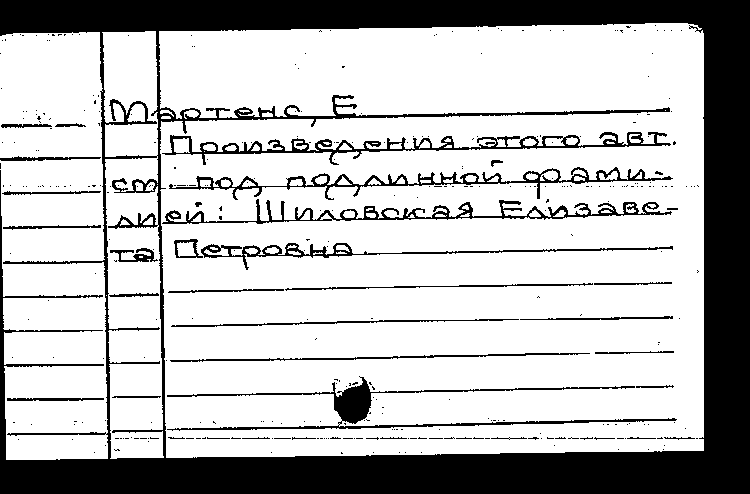 Мартенс, Е
Произведения этого авт.
см. под подлинной фами-
лией: Шиловская Елизаве-
та Петровна.